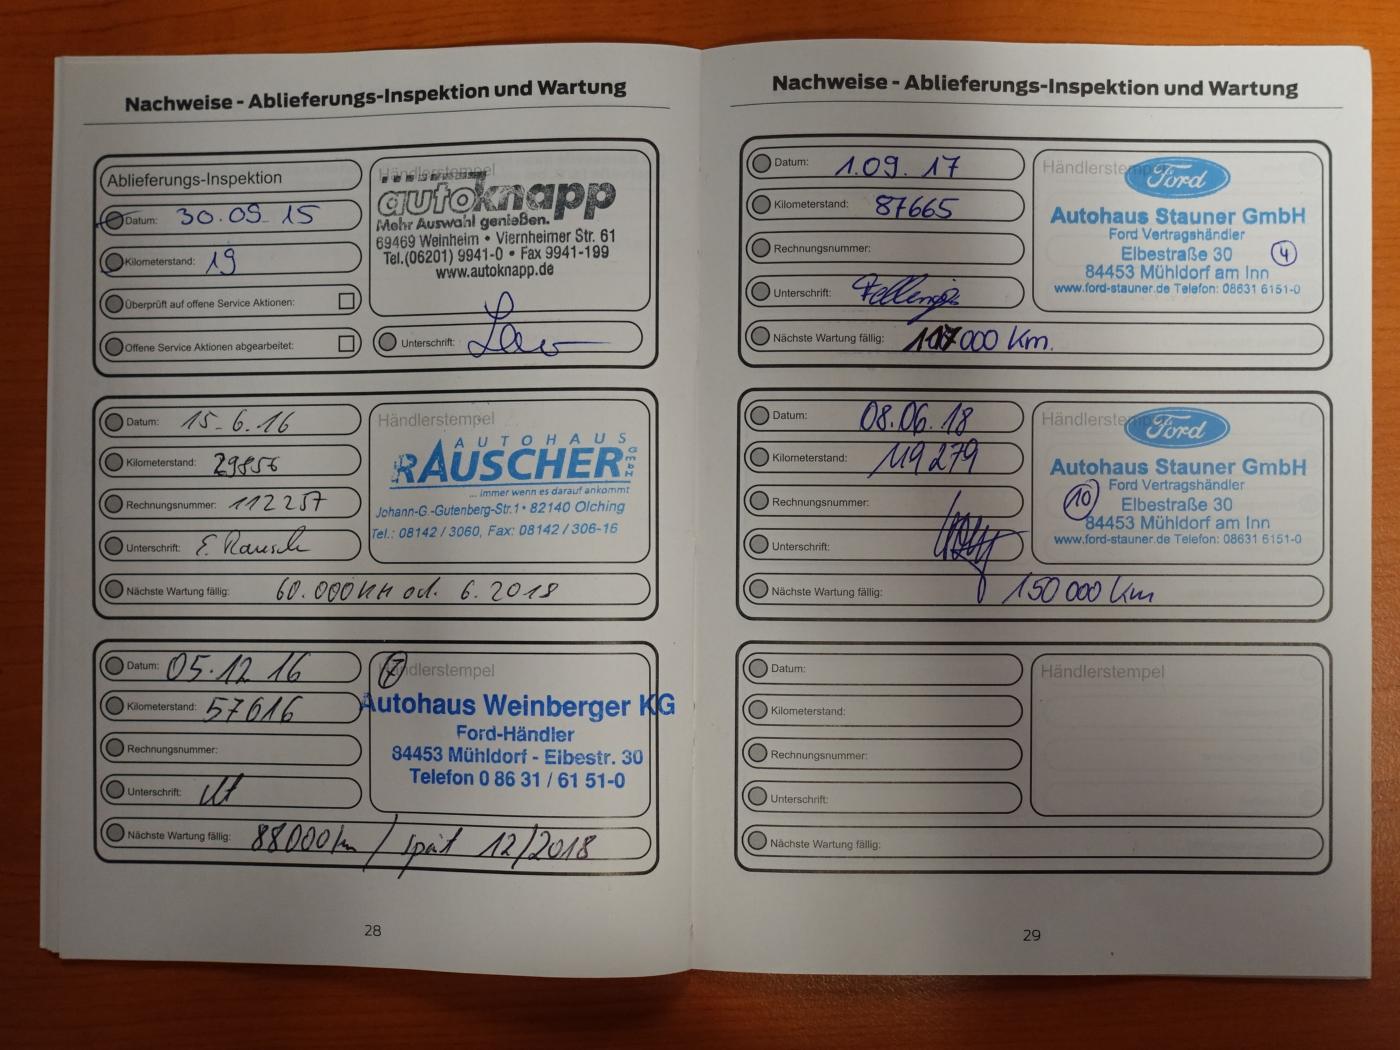 Nachweise - Ablieferungs-Inspektion und Wartung
Ablieferungs-Inspektion
Datum: 30.09.15
Kilometerstand: 19
Überprüft auf offene Service Aktionen:
Offene Service Aktionen abgearbeitet:
Händlerstempel
autoknapp
Mehr Auswahl genießen.
69469 Weinheim • Viernheimer Str. 61
Tel.(06201) 9941-0 • Fax 9941-199
www.autoknapp.de
Unterschrift:
Datum: 15-6.16
Kilometerstand: 29856
Rechnungsnummer: 112257
Unterschrift: E. Rausch
Nächste Wartung fällig: 60.000 KM od. 6.2018
Händlerstempel
AUTOHAUS
RAUSCHER GmbH
... immer wenn es darauf ankommt
Johann-G.-Gutenberg-Str.1 • 82140 Olching
Tel.: 08142 / 3060, Fax: 08142 / 306-16
Datum: 05.12.16
Kilometerstand: 57616
Rechnungsnummer:
Unterschrift:
Nächste Wartung fällig: 88000km / spät 12/2018
Händlerstempel
7
Autohaus Weinberger KG
Ford-Händler
84453 Mühldorf - Elbestr. 30
Telefon 0 86 31 / 61 51-0
28
Nachweise - Ablieferungs-Inspektion und Wartung
Datum: 1.09.17
Kilometerstand: 87665
Rechnungsnummer:
Unterschrift:
Nächste Wartung fällig: 000 Km.
Händlerstempel
Ford
Autohaus Stauner GmbH
Ford Vertragshändler
Elbestraße 30 4
84453 Mühldorf am Inn
www.ford-stauner.de Telefon: 08631 6151-0
Datum: 08.06.18
Kilometerstand: 119279
Rechnungsnummer:
Unterschrift:
Nächste Wartung fällig: 150 000 Km
Händlerstempel
Ford
Autohaus Stauner GmbH
Ford Vertragshändler
10 Elbestraße 30
84453 Mühldorf am Inn
www.ford-stauner.de Telefon: 08631 6151-0
Datum:
Kilometerstand:
Rechnungsnummer:
Unterschrift:
Nächste Wartung fällig:
Händlerstempel
29